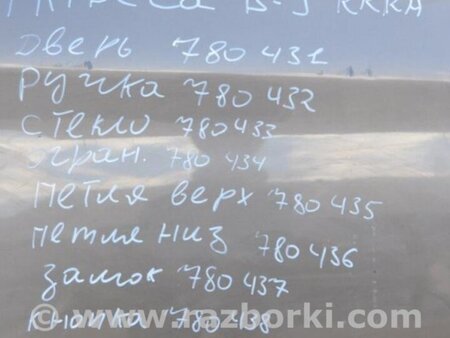 дверь 780431
ручка 780432
стекло 780433
огран. 780434
петля верх 780435
петля низ 780436
замок 780437
кнопка 780438
www.razborki.com